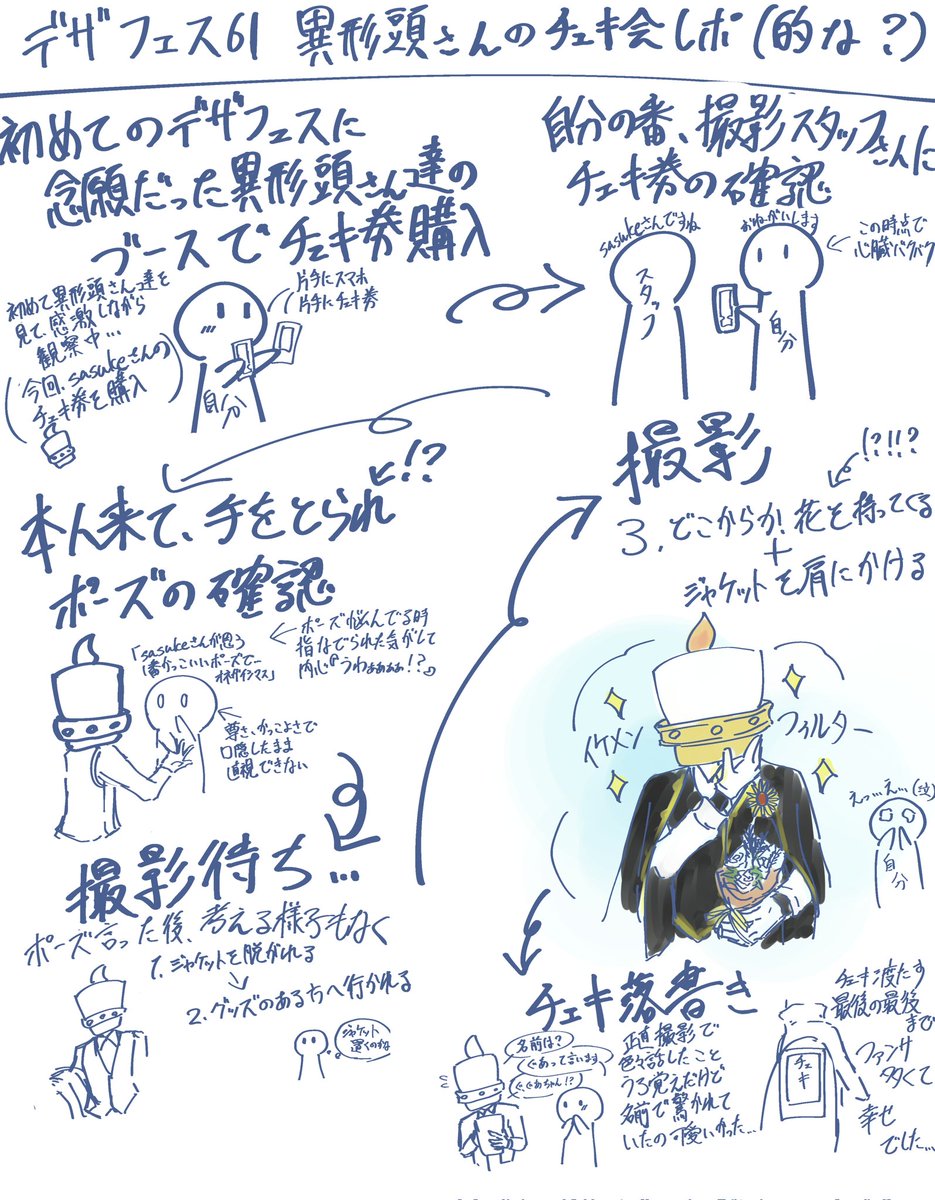 デザフェス61 異形頭さんのチェキ会レポ(的な?)
初めてのデザフェスに
念願だった異形頭さん達の
ブースでチェキ券購入
片手にスマホ
片手にチェキ券
初めて異形頭さん達を
見て、感激しながら
観察中…
(今回、sasukeさんの
チェキ券を購入)
自分
自分の番、撮影スタッフさんに
チェキ券の確認
sasukeさんですね
おねがいします
この時点で
心臓バクバク
スタッフ
自分
!?
本人来て、手をとられ
ポーズの確認
「sasukeさんが思う
1番かっこいいポーズで…
オネガイシマス」
ポーズ悩んでる時
指なでられた気がして
内心『うわぁぁぁぁ!?』
尊さ、かっこよさで
口隠したまま
直視できない
撮影待ち…
ポーズ言った後、考える様子もなく
1.ジャケットを脱がれる
2.グッズのある方へ行かれる
ジャケット
置くのかな
撮影
!?!!?
3.どこからか!花を持ってくる
+
ジャケットを肩にかける
イケメン
フィルター
えっ…え…(泣)
自分
チェキ落書き
名前は?
ぐあって言います
ぐ、ぐあちゃん!?
正直撮影で
色々話したこと
うろ覚えだけど
名前で驚かれて
いたの可愛いかった…
チェキ
チェキ渡たす
最後の最後
まで
ファンサ
多くて
幸せ
でした…